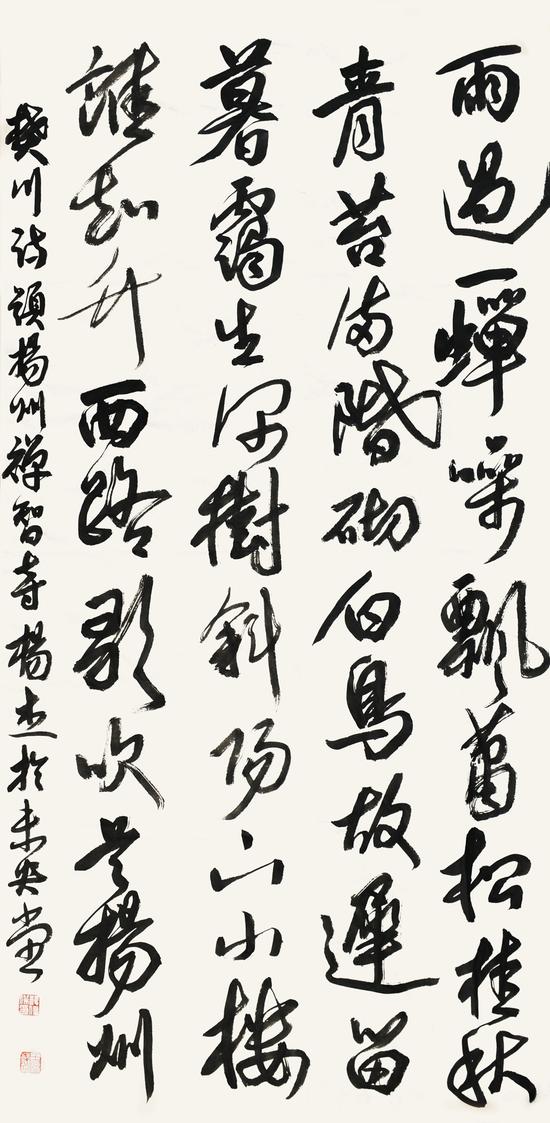 雨過一蟬噪飄蕭松桂秋
青苔滿階砌白鳥故遲留
暮靄生深樹斜陽下小樓
誰知竹西路歌吹是揚州
樊川詩題揚州禪智寺楊杰於未央堂